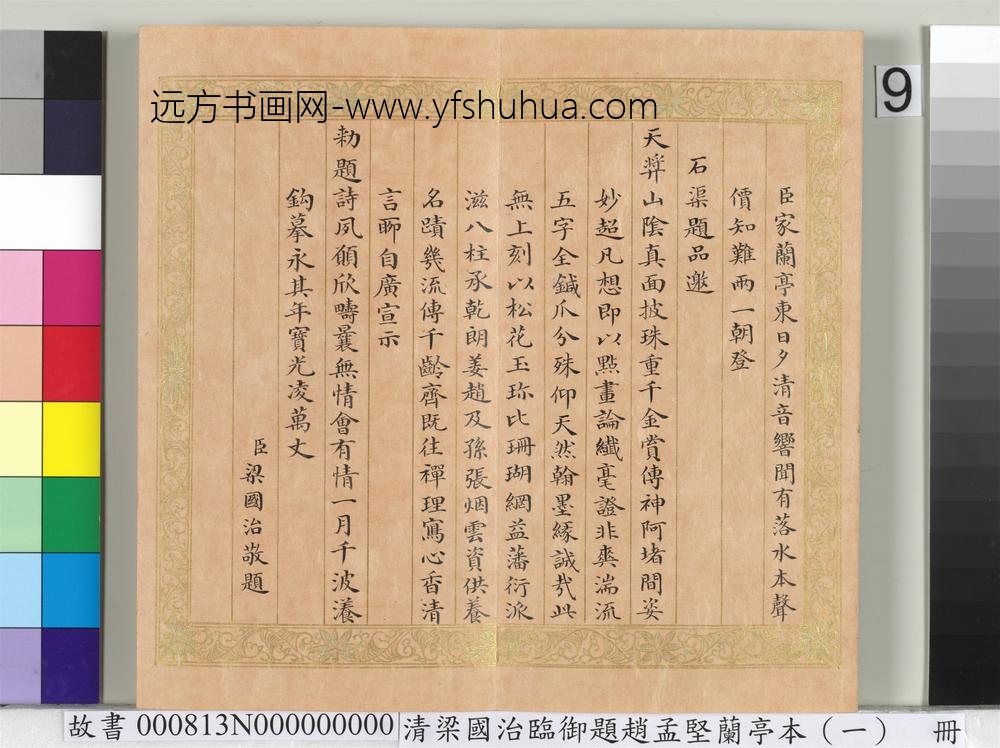 远方书画网-www.yfshuhua.com
9
臣家蘭亭東日夕清音響聞有落水本聲
價知難兩一朝登
石渠題品邀
天弉山陰真面披珠重千金賞傳神阿堵間姿
妙超凡想即以點畫論纖毫證非爽湍流
五字全鋮爪分殊仰天然翰墨緣誠哉此
無上刻以松花玉珎比珊瑚網益藩衍派
滋八柱承乾朗姜趙及孫張烟雲資供養
名蹟幾流傳千齡齊既往禪理寫心香清
言聊自廣宣示
勑題詩夙願欣疇曩無情會有情一月千波瀁
鈎摹永其年寶光凌萬丈
臣梁國治敬題
故書 000813N000000000 清梁國治臨御題趙孟堅蘭亭本（一） 冊